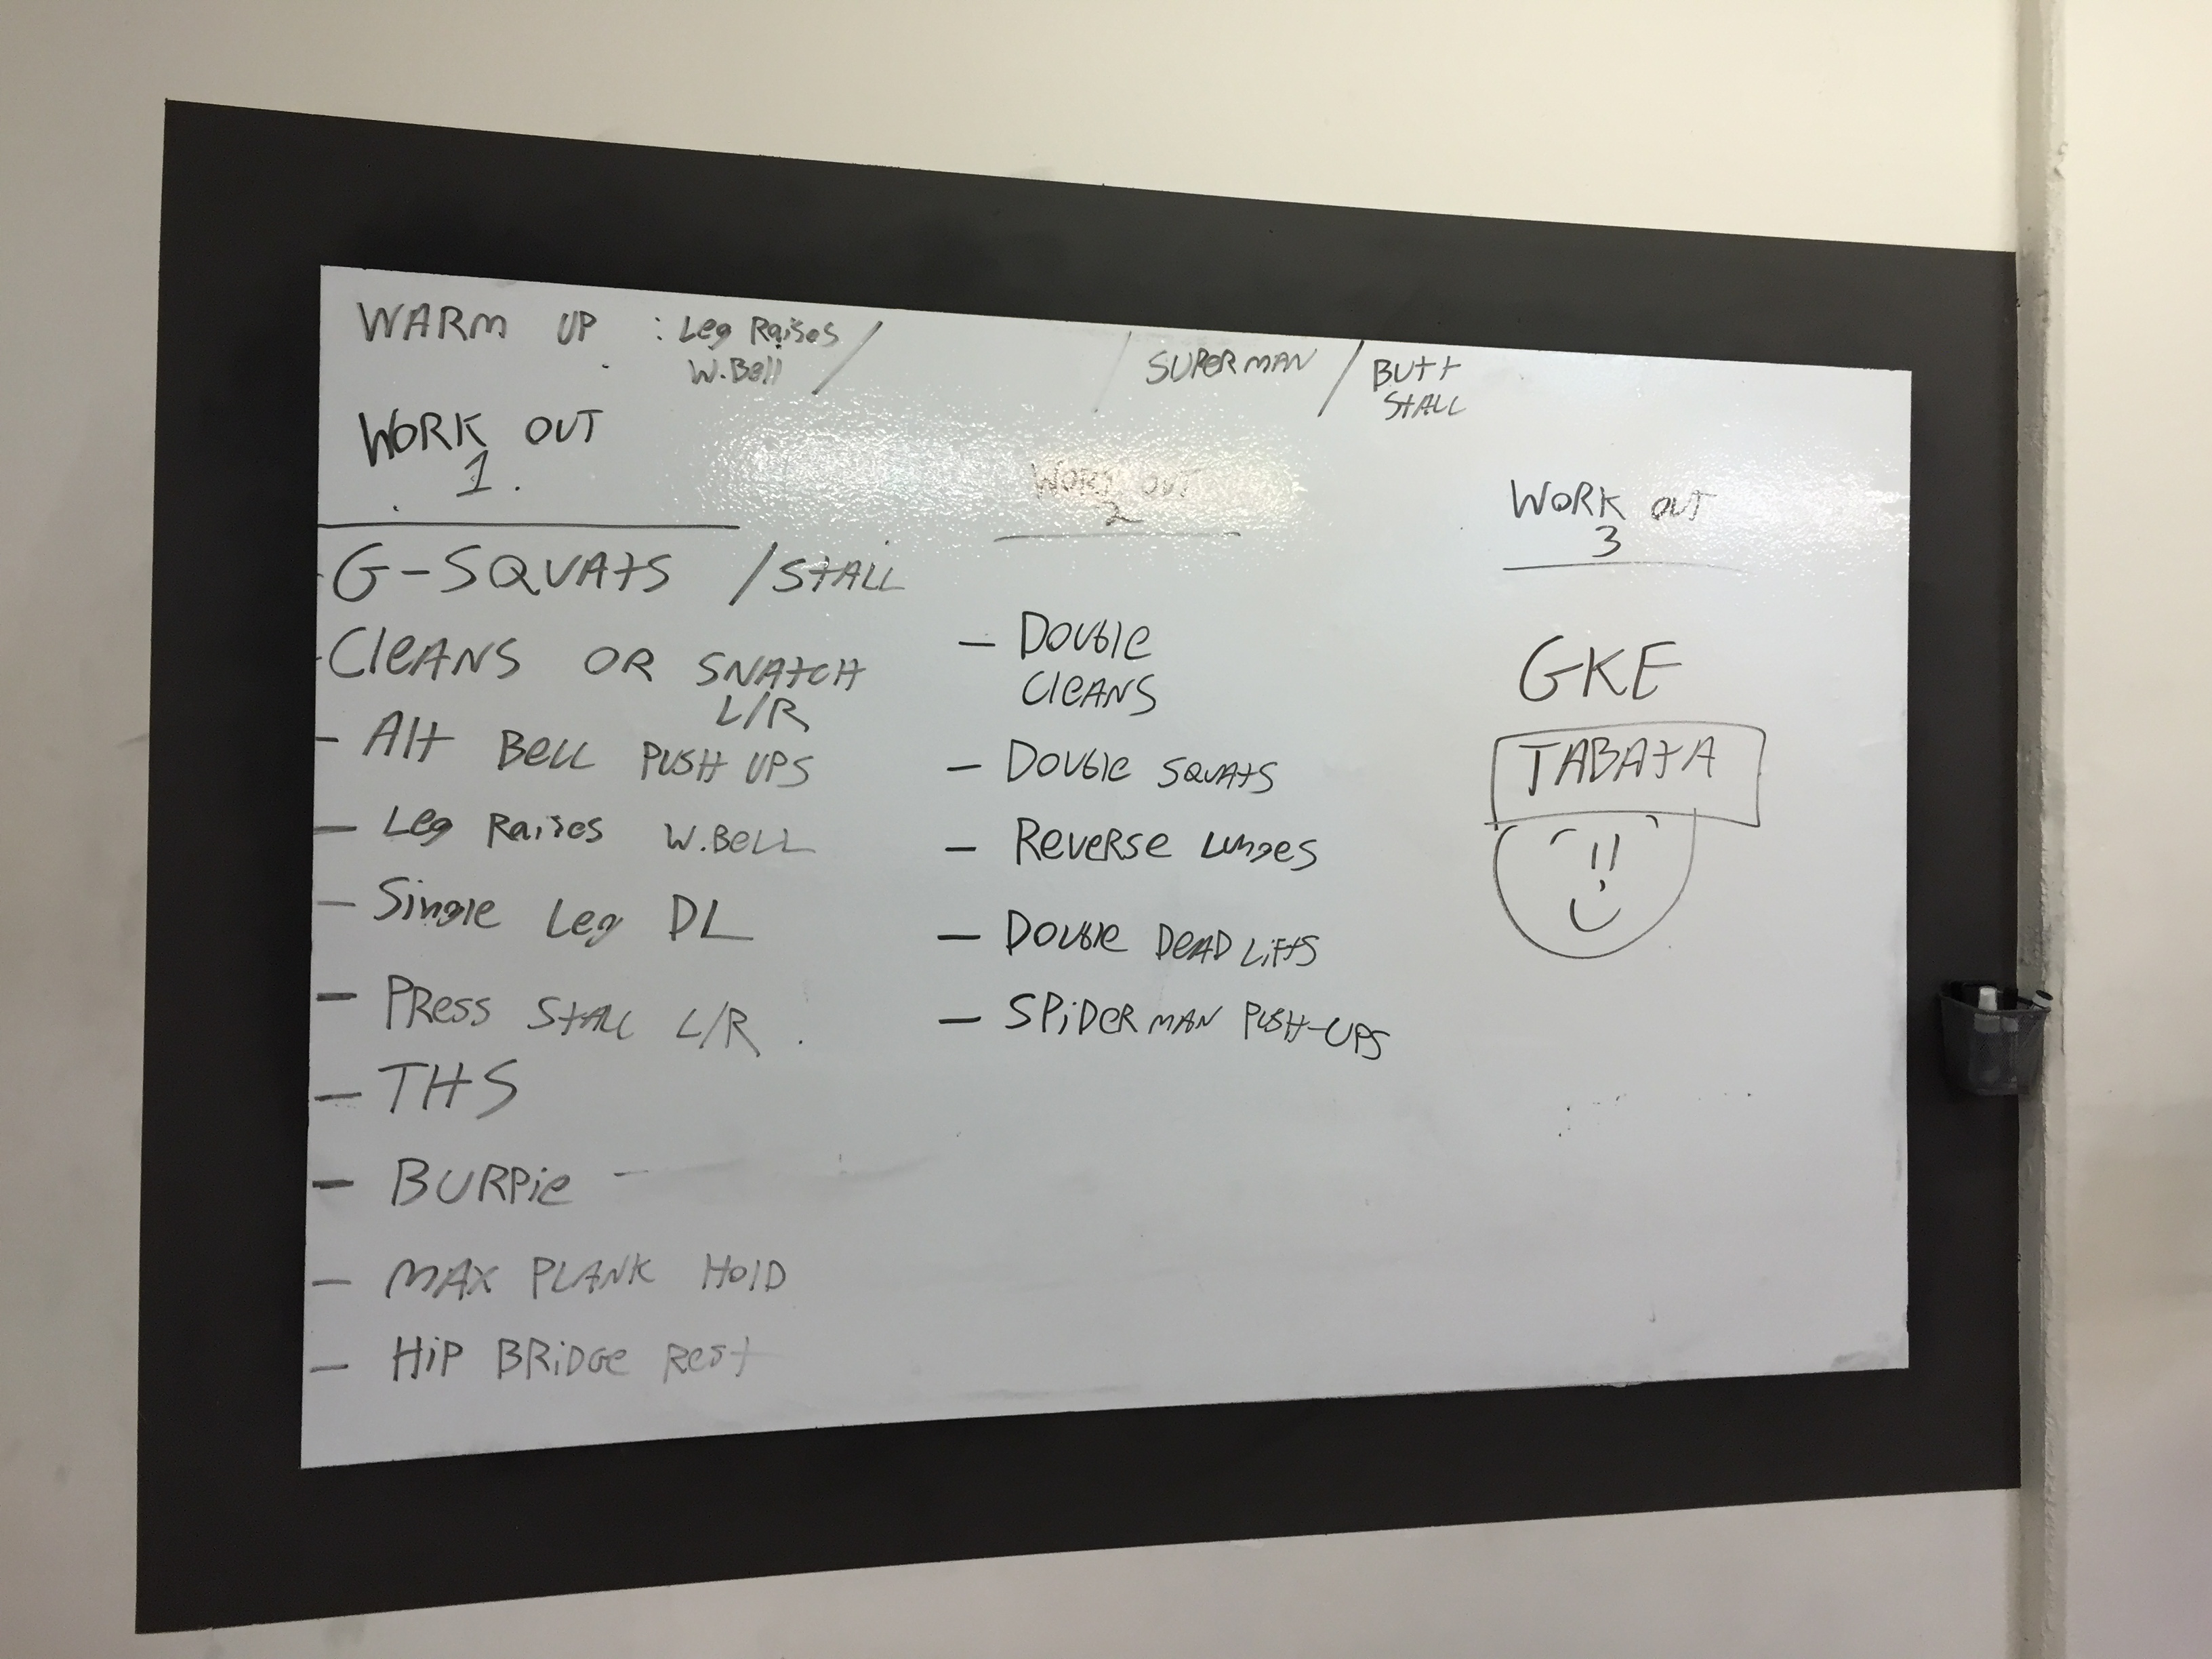 WARM UP : Leg Raises / / SUPERMAN / BUtt
W.Bell StALL
WORK OUT
1.
WORK OUT
2
WORK OUT
3
-G-SQUAtS / StALL
-CleANS OR SNAtCH
L/R
- Alt Bell PUSH UPS
- Leg Raises W.BeLL
- Single Leg DL
- PRess StALL L/R
- THS
- BURPie -
- MAX PLANK HolD
- HiP BRiDGe Rest
- Double
CleANS
- Double SQUAtS
- ReveRse Lunges
- Double DeAD LiFtS
- SPiDeR MAN PUSH-UPS
GKE
TABAtA